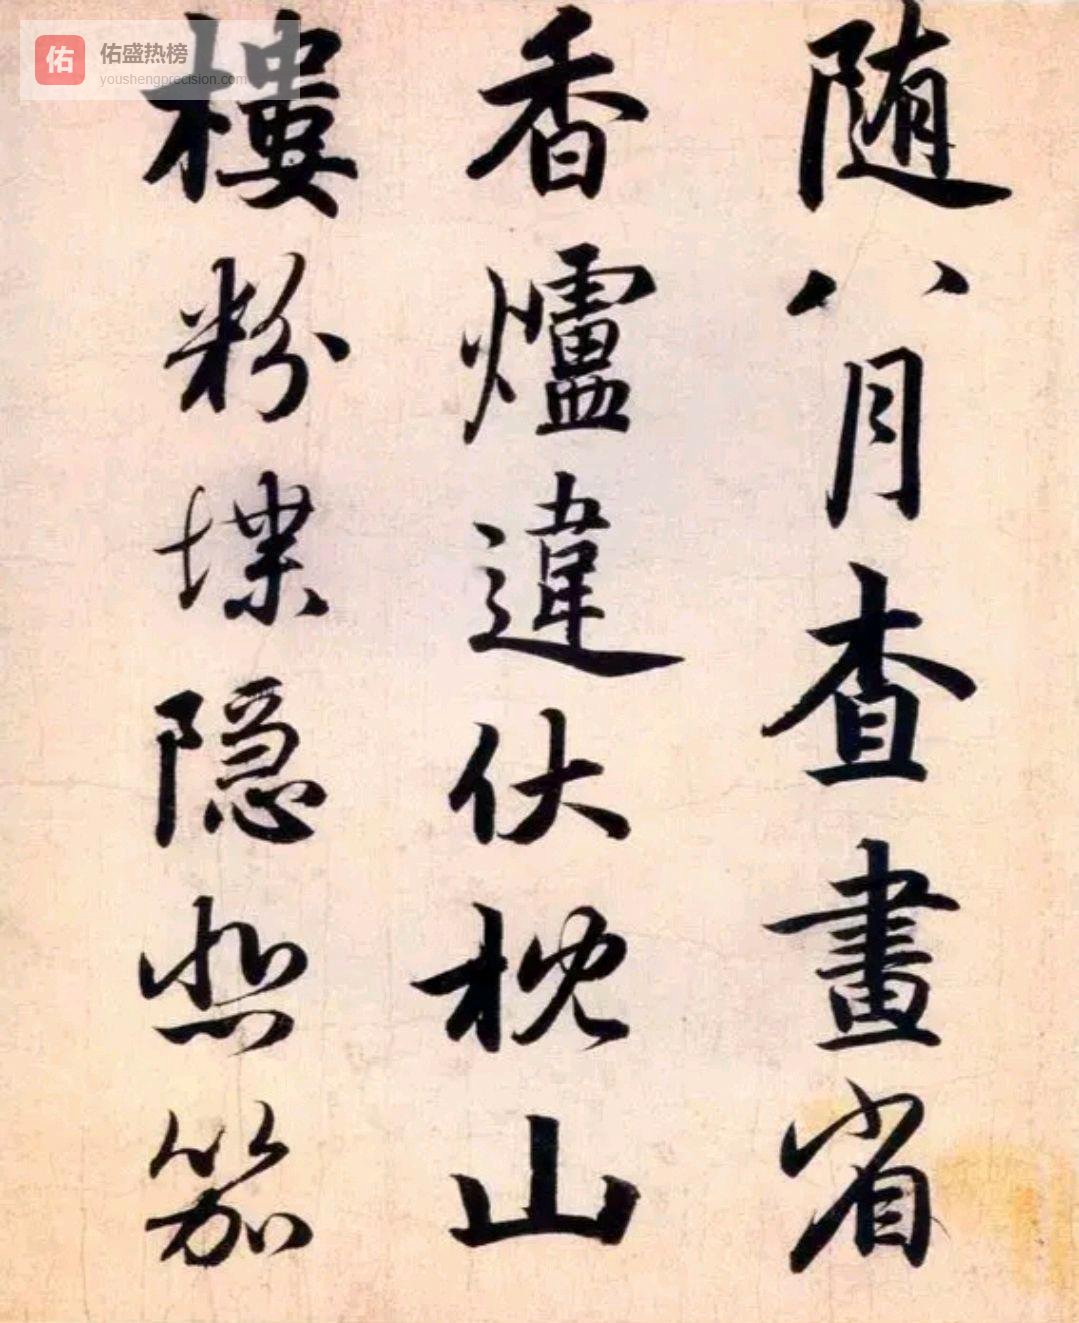 佑
佑盛热榜
youshengprecision.com
随八月查畫省
香爐違伏枕山
樓粉堞隐悲笳